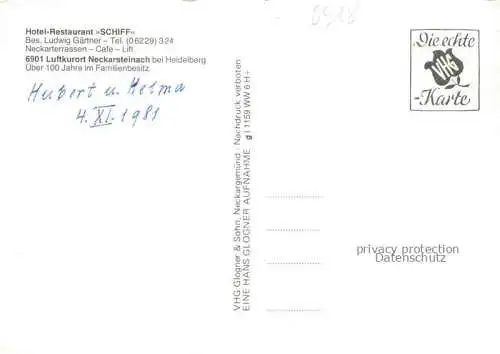 Hotel-Restaurant »SCHIFF«
Bes. Ludwig Gärtner – Tel. (06229) 324
Neckarterrassen – Cafe – Lift
6901 Luftkurort Neckarsteinach bei Heidelberg
Über 100 Jahre im Familienbesitz
Hubert u. Helma
4. XI. 1981
VHG Glogner & Sohn, Neckargemünd · Nachdruck verboten
EINE HANS GLOGNER AUFNAHME g | 1159 WW 6 H+
Die echte
VHG
-Karte
privacy protection
Datenschutz